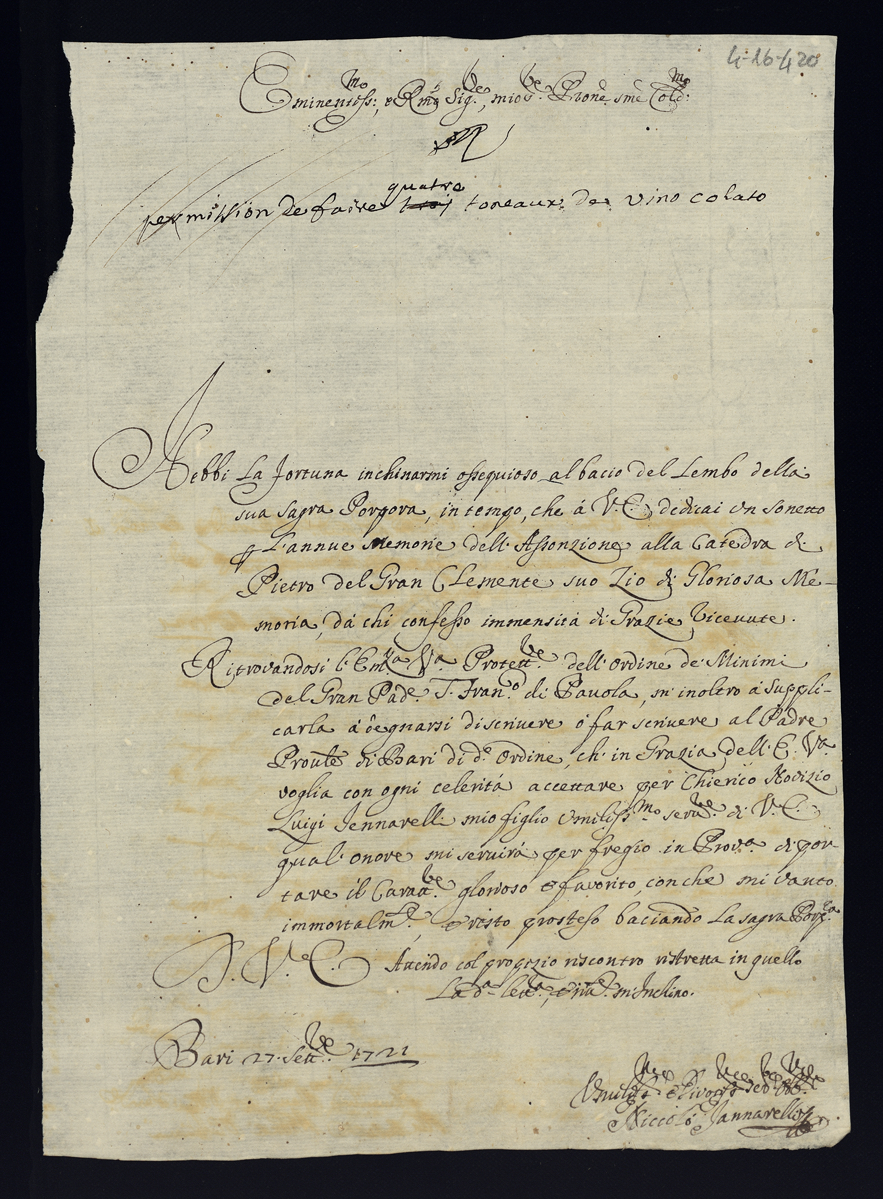 4-16-420
Eminentiss:mo, e Rmo Sig.re, mio Sig.re Prone sme Colmo:
quatre
permission de faire troi toneaux de vino colato
Hebbi la fortuna inchinarmi ossequioso al bacio del Lembo della
sua sagra Porpora, in tempo, che á V. E. dedicai un sonetto
l'annue Memorie dell'Assonzione alla Catedra di
Pietro del Gran Clemente suo Zio di Gloriosa Me-
moria, dá chi confesso immensitá di Grazie Riceuute.
Ritrovandosi l'Emza Va. Protett.re dell'ordine de Minimi
del Gran Pad.e S. Fran.o di Pauola, m'inoltro á suppli-
carla á degnarsi di scrivere ó far scrivere al Padre
Prouле di Bari di d.o ordine, ch'in Grazia dell'E. Va.
voglia con ogni celeritá accettare per Chierico Novizio
Luigi Jennarelli mio figlio Umiliss.mo seru.re di V. E.
qual'onore mi seruirá per fregio in Prova. di por-
tare il Caratt.re glorioso e favorito, con che mi vanto
immortalm.te e resto prosteso baciando la sagra Porp.ra
D. V. E. Auendo col propizio riscontro ristretta in quello
la d.a lett.a, e mi Inchino.
Bari 27. Sett.bre 1721
Umiliss.mo e Divotiss.mo ser.re Obb.
Niccoló Jannarelli